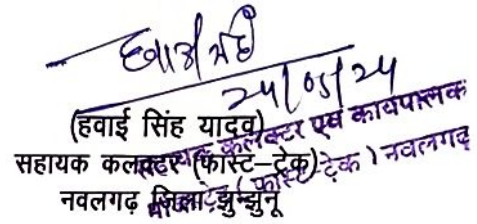 24/05/24
(हवाई सिंह यादव)
सहायक कलक्टर (फास्ट-ट्रेक)
नवलगढ़ जिला झुन्झुनू
कलक्टर एवं कार्यपालक
(फास्ट-ट्रेक) नवलगढ़